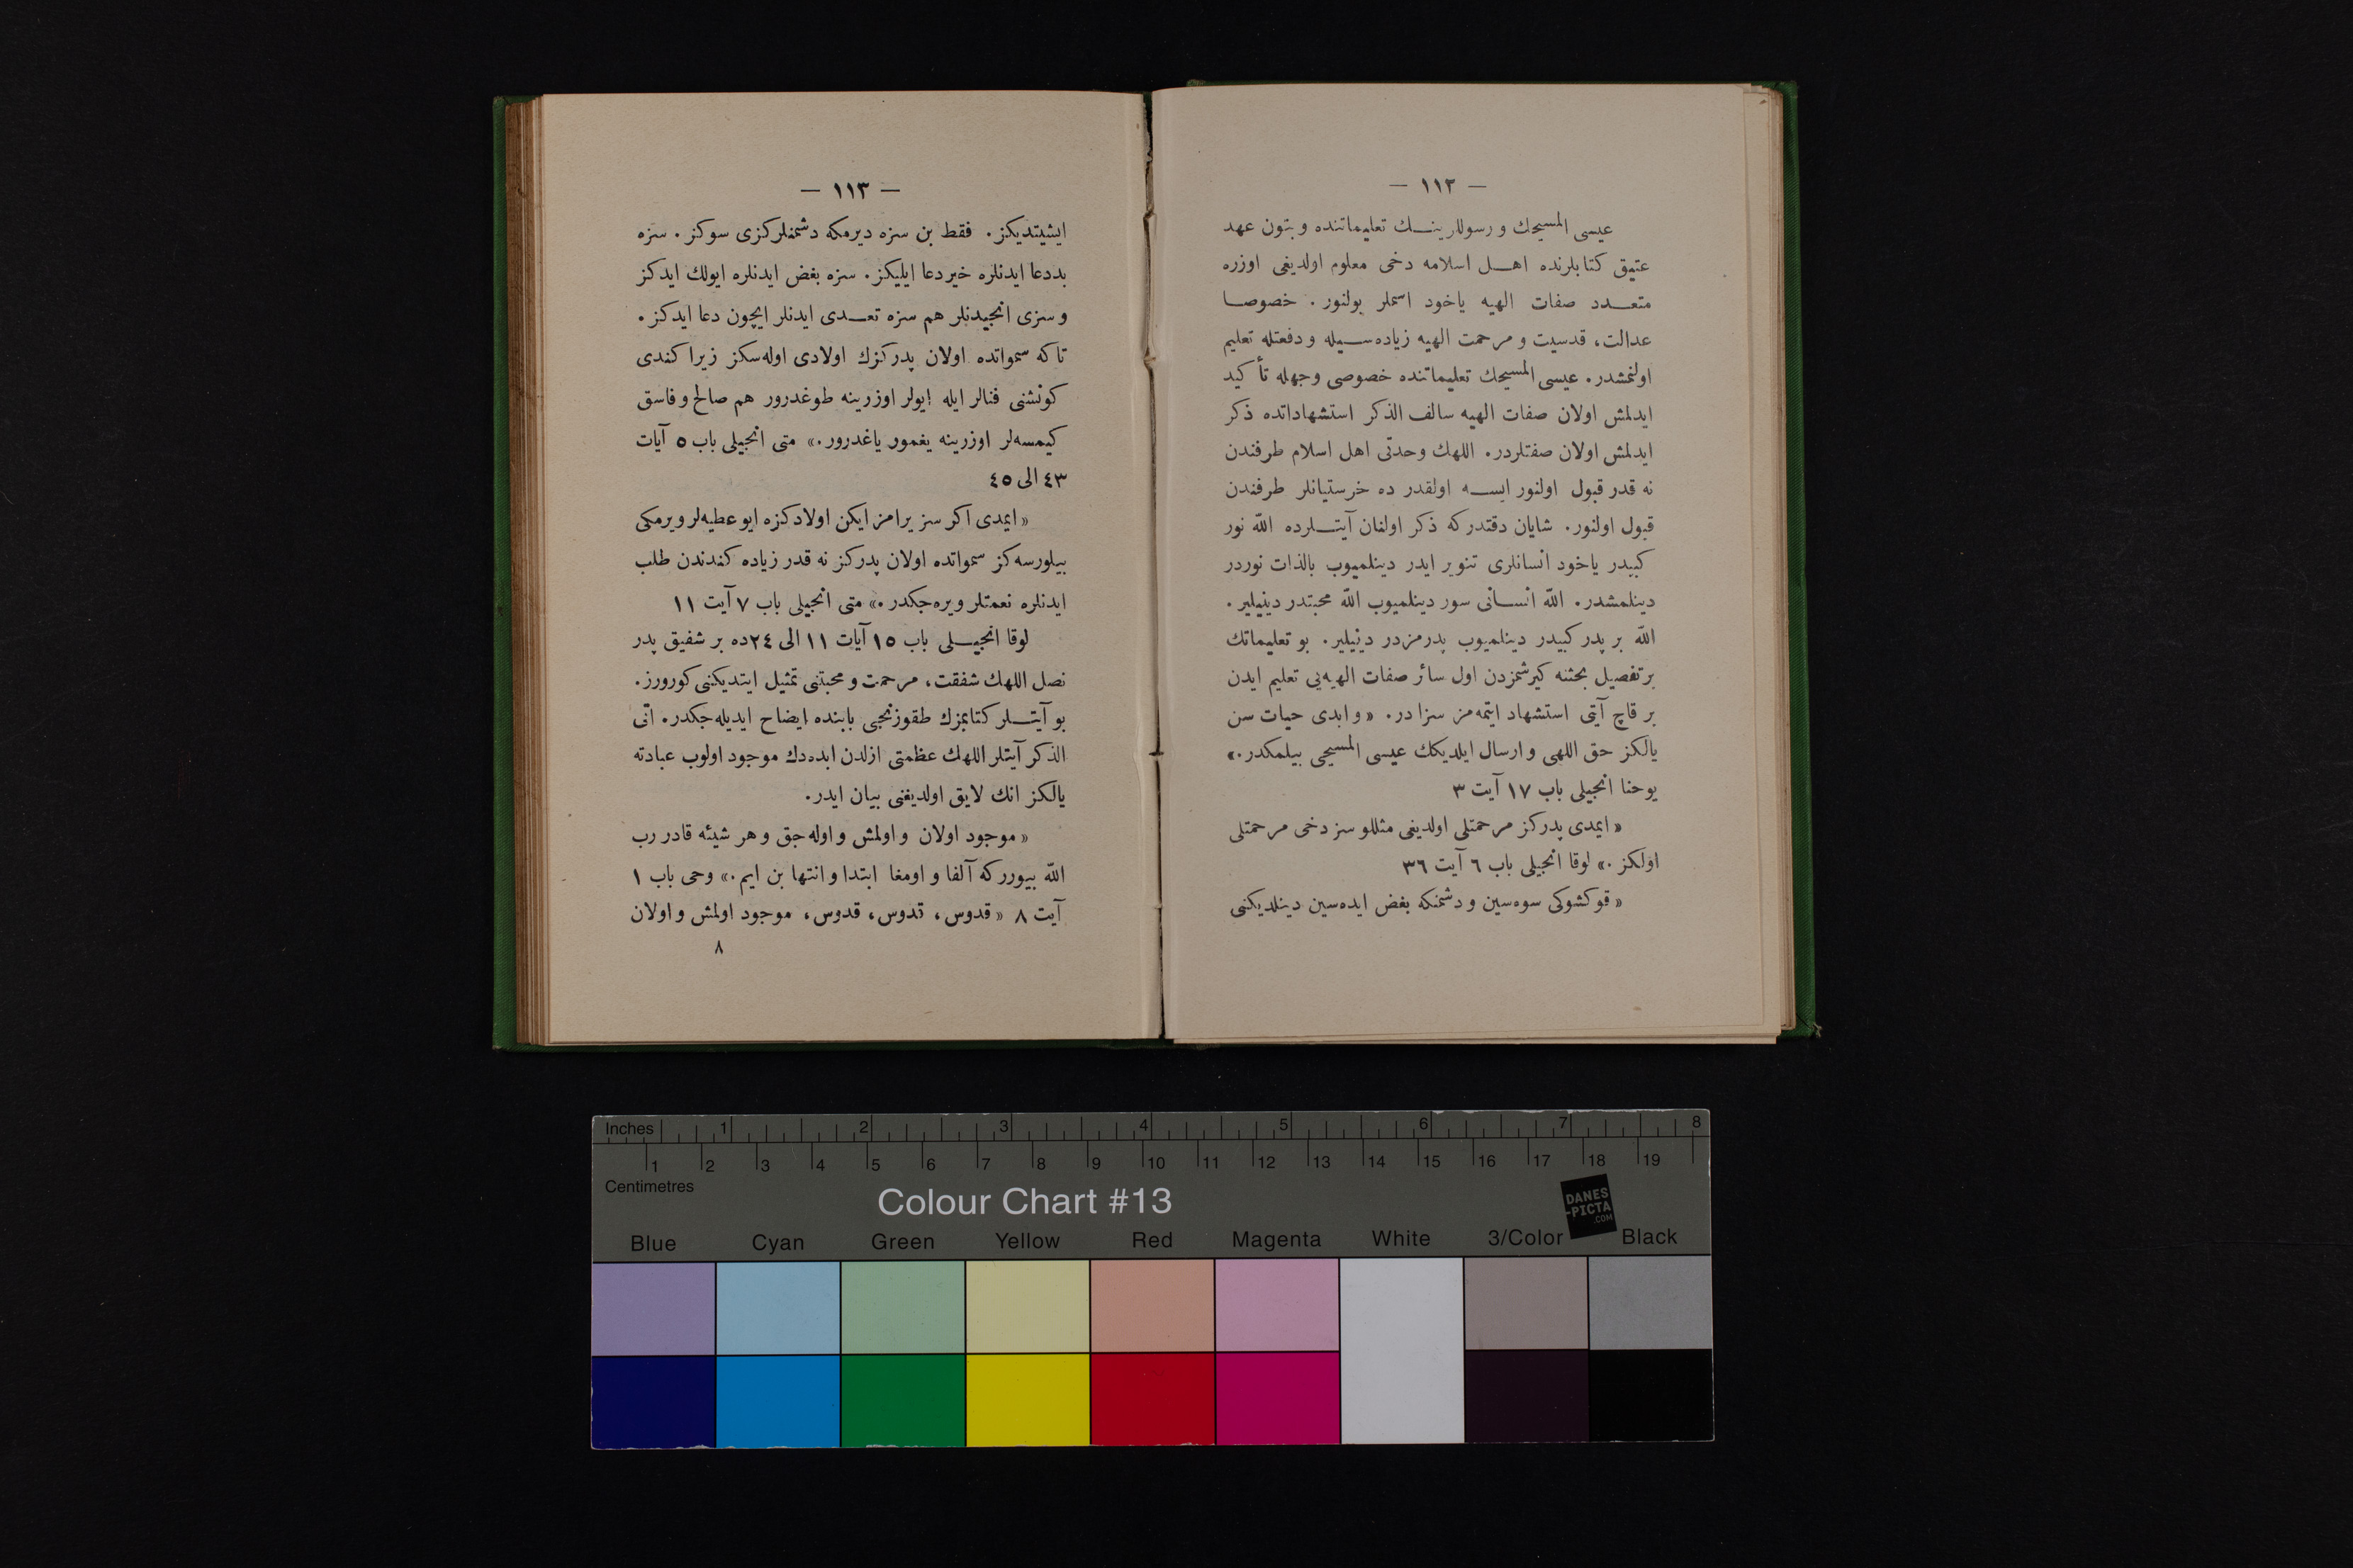 — ١١٢ —
عيسى المسيحك و رسوللرينـك تعليماتنده و بتون عهد
عتيق كتابلرنده اهـل اسلامه دخى معلوم اولديغى اوزره
متعـدد صفات الهيه ياخود اسملر بولنور . خصوصـا
عدالت، قدسيت و مرحمت الهيه زياده‌سـيله و دفعتله تعليم
اولنمشدر. عيسى المسيحك تعليماتنده خصوصى وجهله تأكيد
ايدلمش اولان صفات الهيه سالف الذكر استشهاداتده ذكر
ايدلمش اولان صفتلردر. اللهك وحدتى اهل اسلام طرفندن
نه قدر قبول اولنور ايسـه اولقدر ده خرستيانلر طرفندن
قبول اولنور. شايان دقتدركه ذكر اولنان آيتـلرده الله نور
كبيدر ياخود انسانلرى تنوير ايدر دينلميوب بالذات نوردر
دينلمشدر. الله انسـانى سور دينلميوب الله محبتدر دينيلير.
الله بر پدر كبيدر دينلميوب پدرمزدر دينيلير. بو تعليماتك
برتفصيل بحثنه كيرشمزدن اول سائر صفات الهيه‌يى تعليم ايدن
بر قاچ آيتى استشهاد ايتمه‌مز سزادر. «و ابدى حيات سن
يالكز حق اللهى و ارسال ايلديكك عيسى المسيحى بيلمكدر.»
يوحنا انجيلى باب ١٧ آيت ٣
« ايمدى پدركز مرحمتلى اولديغى مثللو سز دخى مرحمتلى
اولكز .» لوقا انجيلى باب ٦ آيت ٣٦
« قوكشوكى سوه‌سين و دشمنكه بغض ايده‌سين دينلديكنى
— ١١٣ —
ايشيتديكز. فقط بن سزه ديرمكه دشمنلركزى سوكز . سزه
بددعا ايدنلره خيردعا ايليكز. سزه بغض ايدنلره ايولك ايدكز
و سزى انجيدنلر هم سزه تعـدى ايدنلر ايچون دعا ايدكز.
تا كه سمواتده اولان پدركزك اولادى اوله‌سكز زيرا كندى
كونشنى فنالر ايله ايولر اوزرينه طوغدرور هم صالح و فاسق
كيمسه‌لر اوزرينه يغمور ياغدرور.» متى انجيلى باب ٥ آيات
٤٣ الى ٤٥
« ايمدى اكر سز يرامز ايكن اولادكزه ايو عطيه‌لر ويرمكى
بيلورسه‌كز سمواتده اولان پدركز نه قدر زياده كندندن طلب
ايدنلره نعمتلر ويره‌جكدر.» متى انجيلى باب ٧ آيت ١١
لوقا انجيـلى باب ١٥ آيات ١١ الى ٢٤ده بر شفيق پدر
نصل اللهك شفقت، مرحمت و محبتنى تمثيل ايتديكنى كورورز.
بو آيتـلر كتابمزك طقوزنجى بابنده ايضاح ايديله‌جكدر. اتى
الذكر آيتلر اللهك عظمتى ازلدن ابده‌دك موجود اولوب عبادته
يالكز انك لايق اولديغنى بيان ايدر.
« موجود اولان و اولمش و اوله‌جق و هر شيئه قادر رب
الله بيوررکه آلفا و اومغا ابتدا و انتها بن ايم.» وحى باب ١
آيت ٨ « قدوس، قدوس، قدوس، موجود اولمش و اولان
٨
Inches 1 2 3 4 5 6 7 8
1 2 3 4 5 6 7 8 9 10 11 12 13 14 15 16 17 18 19
Centimetres
Colour Chart #13
DANES
-PICTA
.COM
Blue Cyan Green Yellow Red Magenta White 3/Color Black